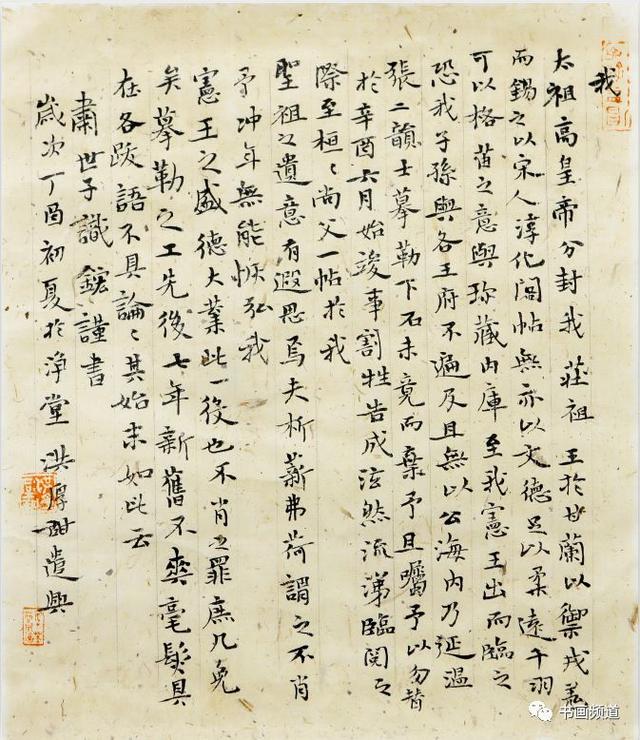 我
太祖高皇帝分封我 莊祖王於甘蘭以禦戎羌
而錫之以宋人淳化閣帖無亦以文德足以柔遠干羽
可以格苗之意與珍藏內庫至我憲王出而臨之
恐我子孫與各王府不遍及且無以公海內乃延溫
張二韻士摹勒下石未竟而棄予且囑予以勿替
於辛酉六月始竣事割牲告成泫然流涕臨閱之
際至桓〻尚父一帖於我
聖祖之遺意有遐思焉夫析薪弗荷謂之不肖
予沖年無能恢弘我
憲王之盛德大業此一役也不肖之罪庶几免
矣摹勒之工先後七年新舊不爽毫髮具
在各跋語不具論〻其始末如此云
肅世子識鋐謹書
歲次丁酉初夏於淨堂 洪厚甜遣興
书画频道